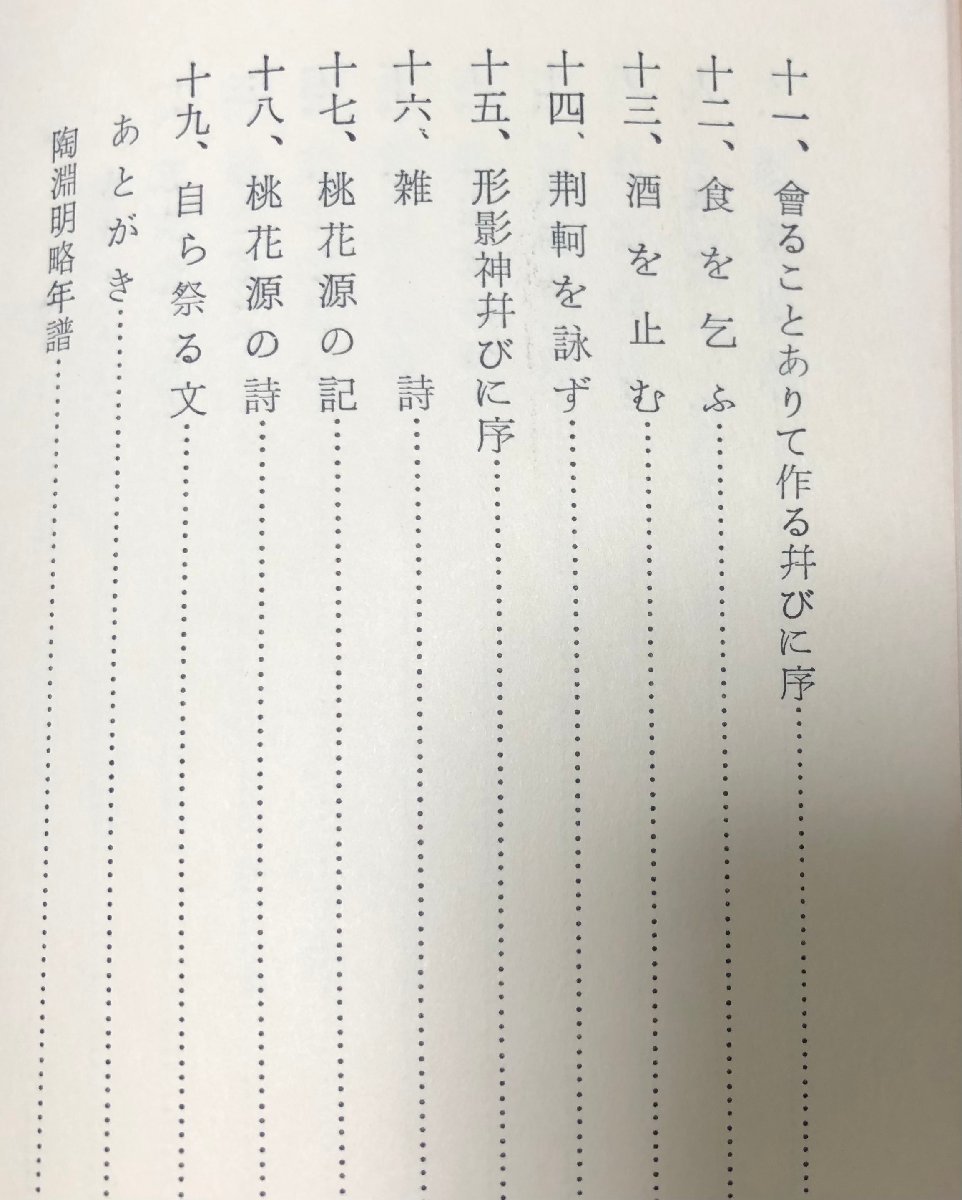 十一、會ることとありて作る幷びに序……
十二、食を乞ふ……
十三、酒を止む……
十四、荆軻を詠ず……
十五、形影神幷びに序……
十六、雑詩……
十七、桃花源の記……
十八、桃花源の詩……
十九、自ら祭る文……
あとがき……
陶淵明略年譜……